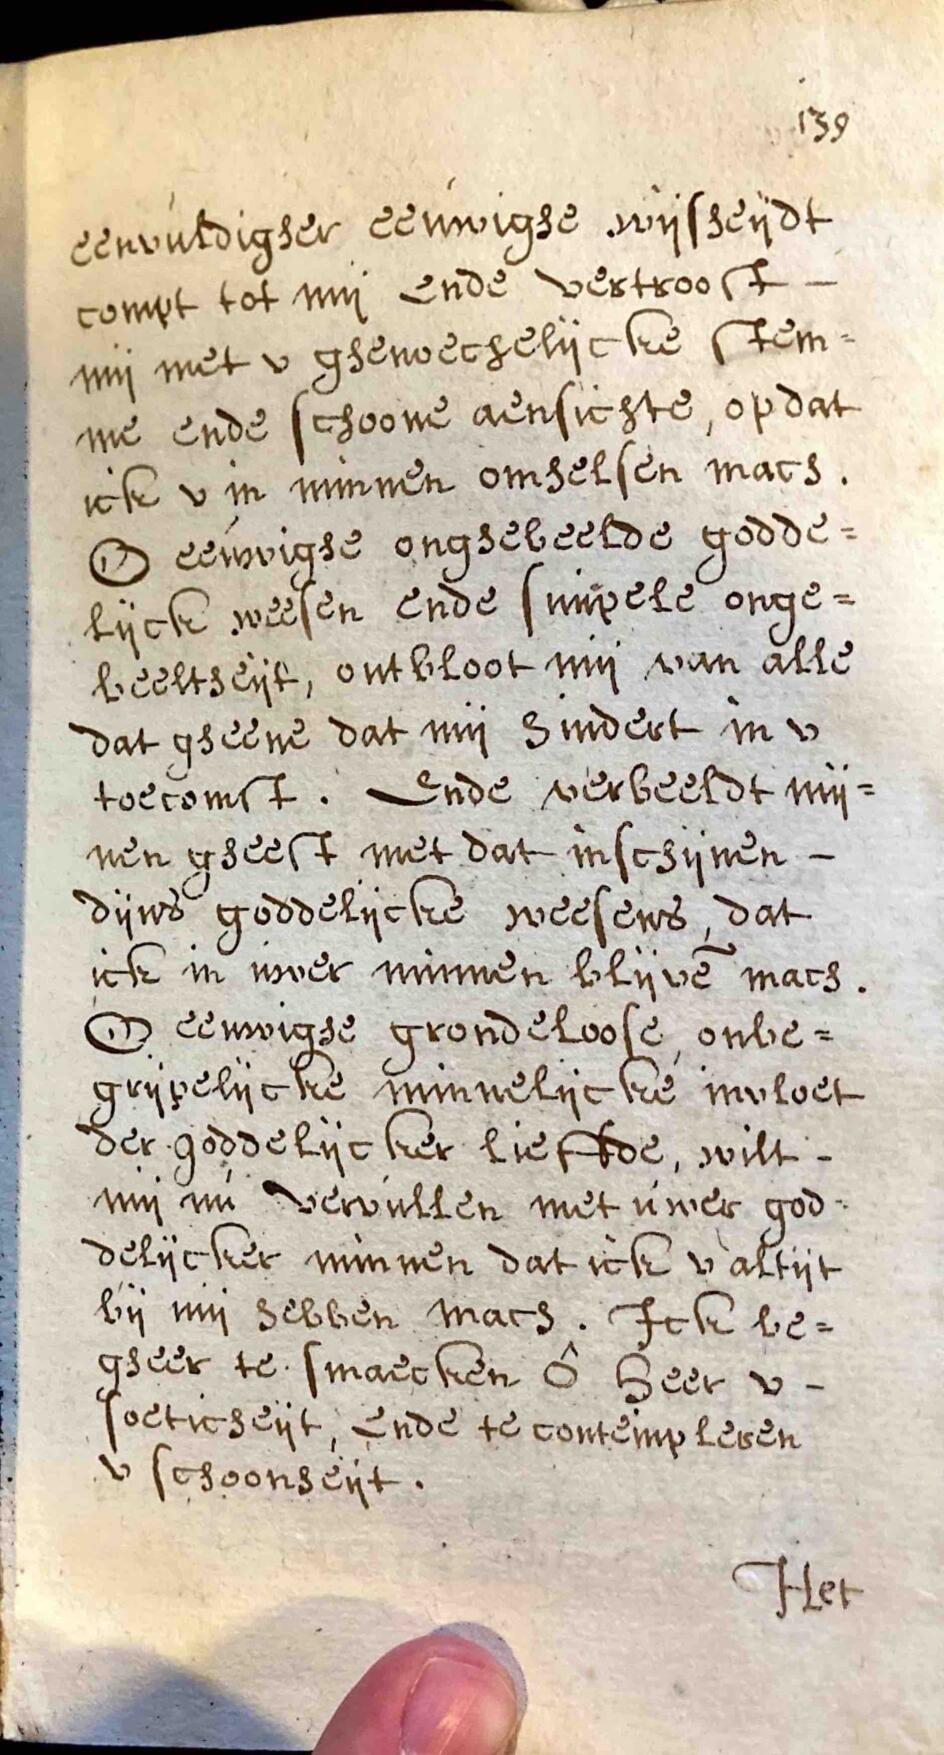 139
eenvuldigher eeuwighe wijsheijdt
compt tot mij Ende vertroost –
mij met v ghenoechelijcke stem=
me ende schoone aensichte, op dat
ick v in minnen omhelsen mach.
O eeuwighe onghebeelde godde=
lijck weesen ende simpele onge=
beeltheijt, ontbloot mij van alle
dat gheene dat mij hindert in v
toecomst. Ende verbeeldt mij=
nen gheest met dat inschijnen –
dijns goddelijcke weesens, dat
ick in uwer minnen blijvē mach.
O eeuwighe grondeloose, onbe=
grijpelijcke minnelijcke invloet
der goddelijcker lieffde, wilt –
mij nu vervullen met uwer god-
delijcker minnen dat ick v altijt
bij mij hebben mach. Ick be=
gheer te smaecken ô Heer v –
soeticheijt, Ende te contempleren
v schoonheijt.
Het